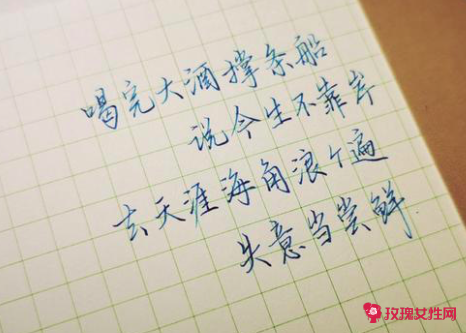 喝完大酒撑条船
说今生不靠岸
去天涯海角浪个遍
失意当尝鲜
玫瑰女性网